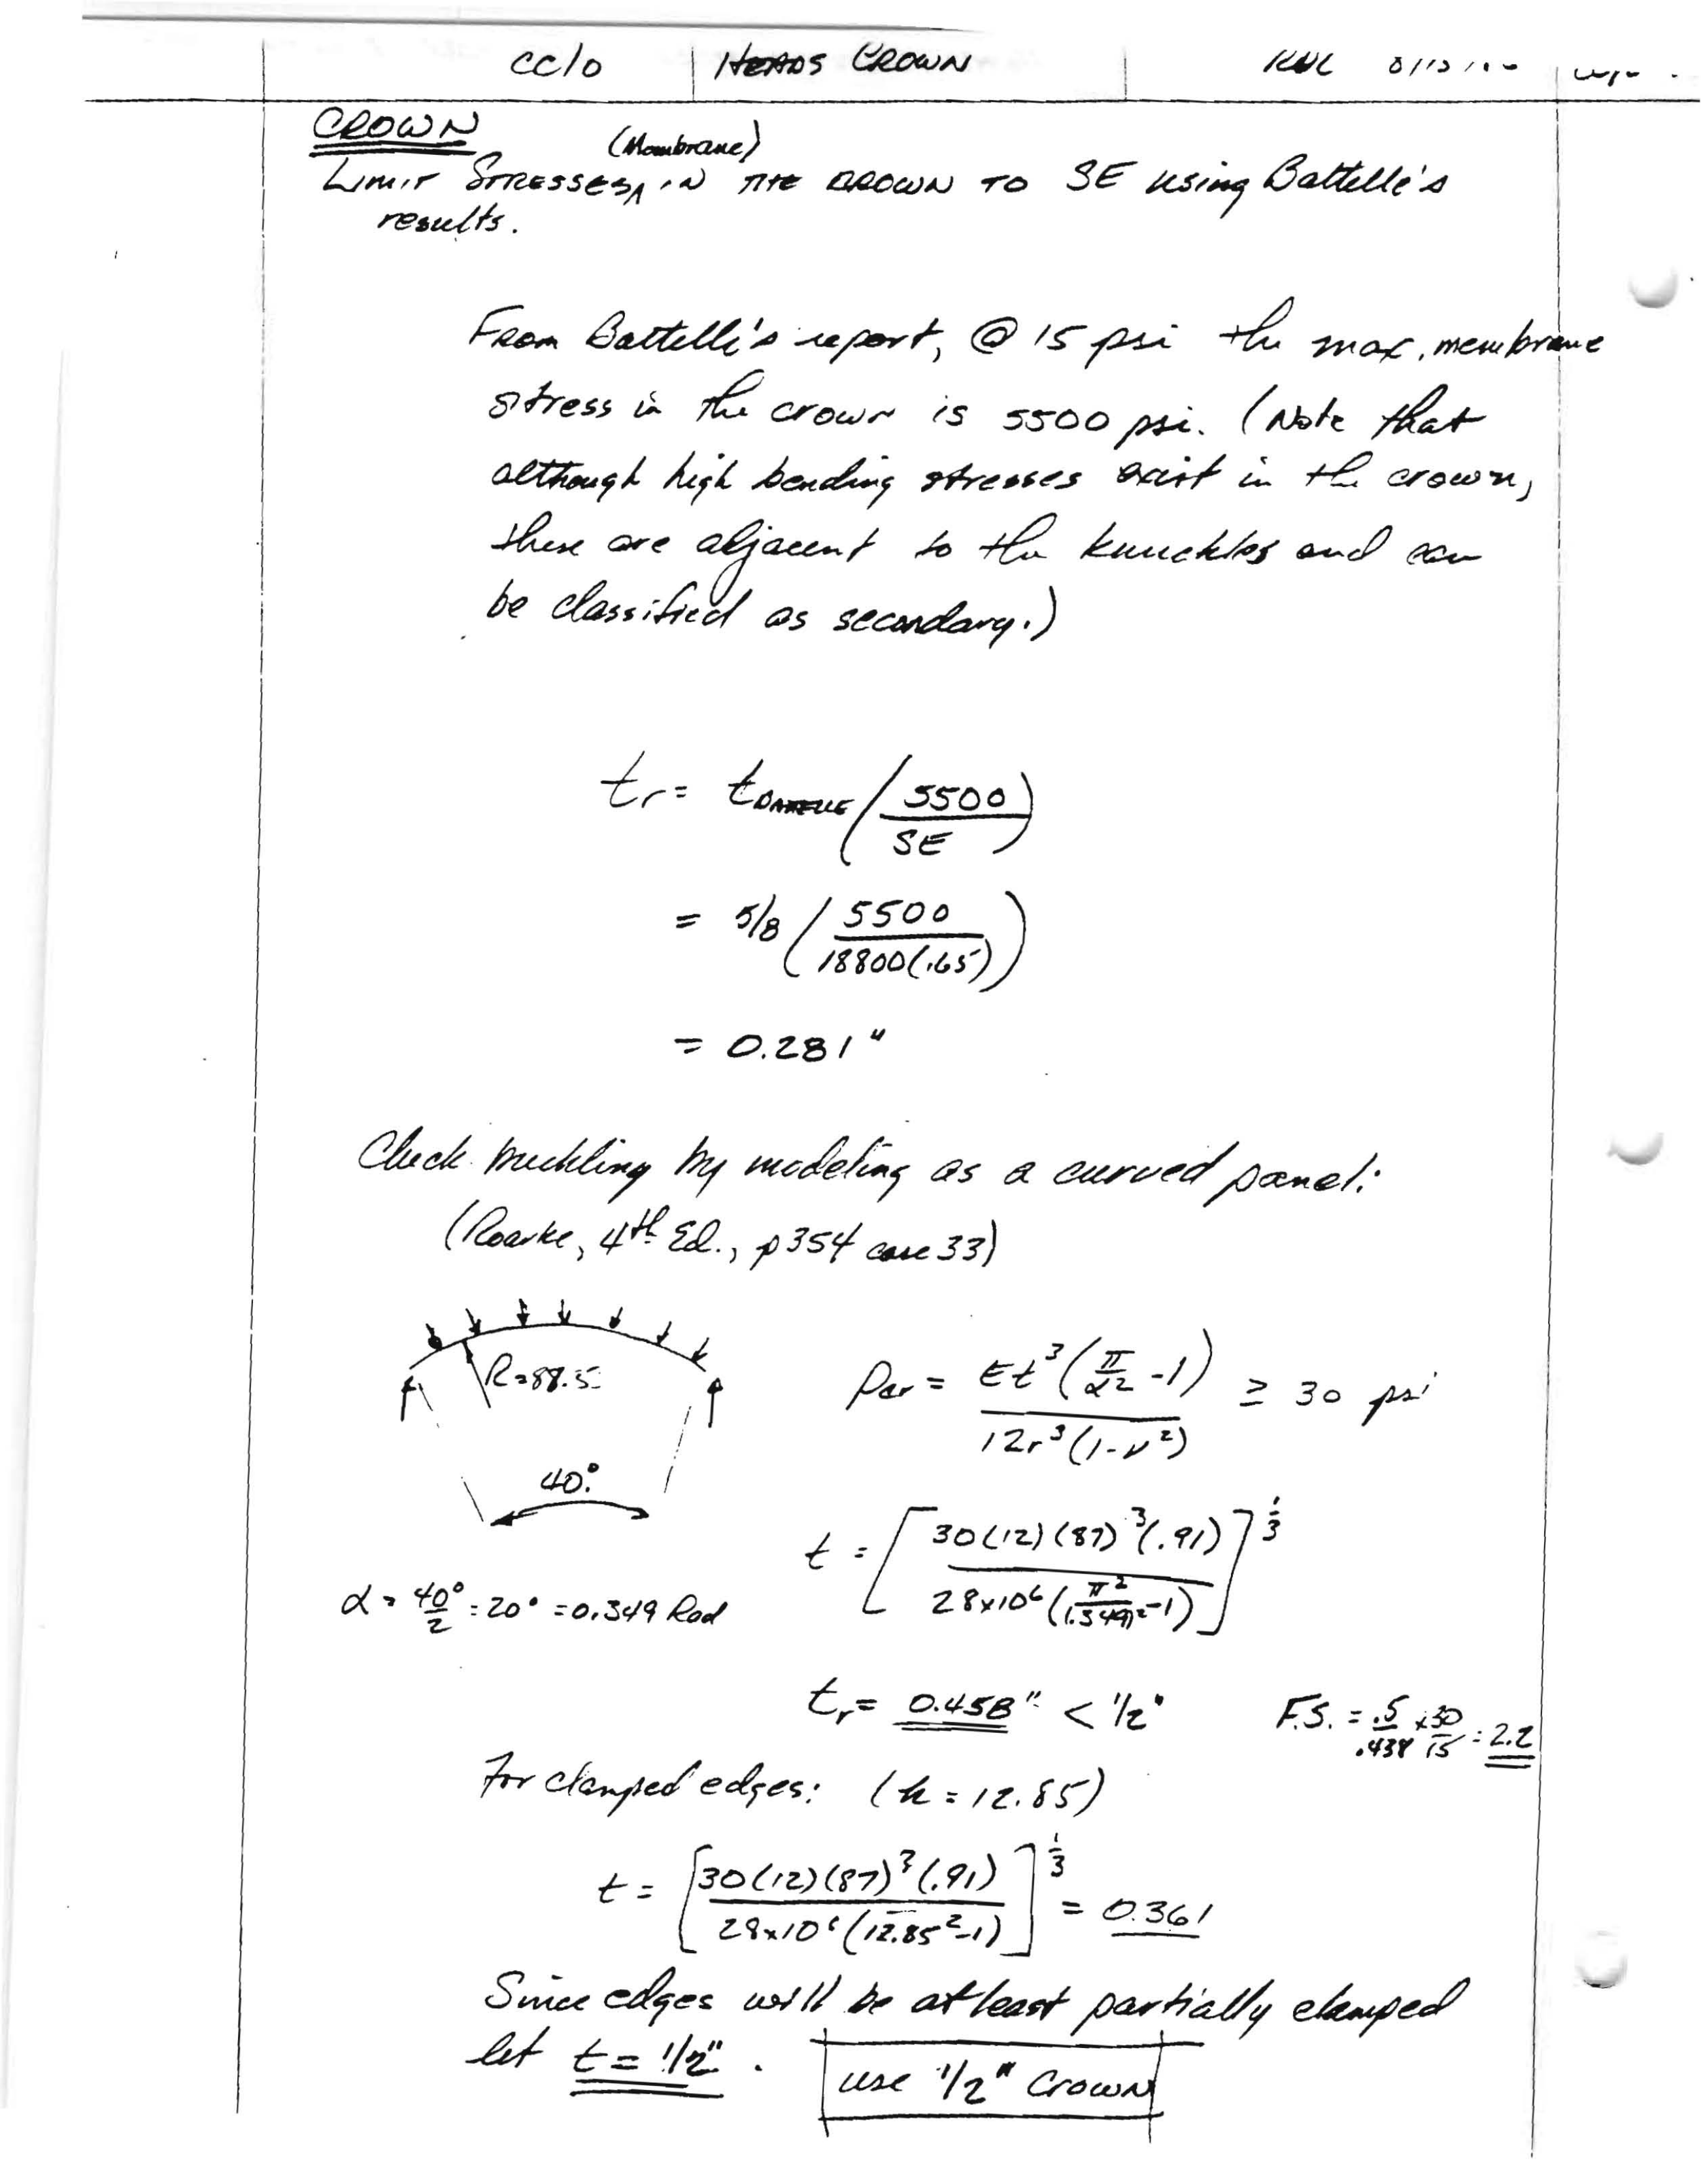 CC/O HEADS CROWN
CROWN
(Membrane)
LIMIT STRESSES, IN THE CROWN TO SE using Battelle's
results.
From Battelle's report, @ 15 psi the max. membrane
stress in the crown is 5500 psi. (Note that
although high bending stresses exist in the crown,
these are adjacent to the knuckles and can
be classified as secondary.)
tr = tBATTELLE (5500/SE)
= 5/8 (5500/18800(.65))
= 0.281"
Check buckling by modeling as a curved panel:
(Roarke, 4th Ed., p354 case 33)
R=88.5
40°
Pcr = Et³(π/α² -1) / 12r³(1-ν²) ≥ 30 psi
t = [30(12)(87)³(.91) / 28x10⁶(π²/(.349)²-1)]^1/3
α = 40°/2 = 20° = 0.349 Rad
tr = 0.458" < 1/2" F.S. = .5/.438 x 30/15 = 2.2
For clamped edges: (k = 12.85)
t = [30(12)(87)³(.91) / 28x10⁶(12.85²-1)]^1/3 = 0.361
Since edges will be at least partially clamped
let t = 1/2".
use 1/2" Crown